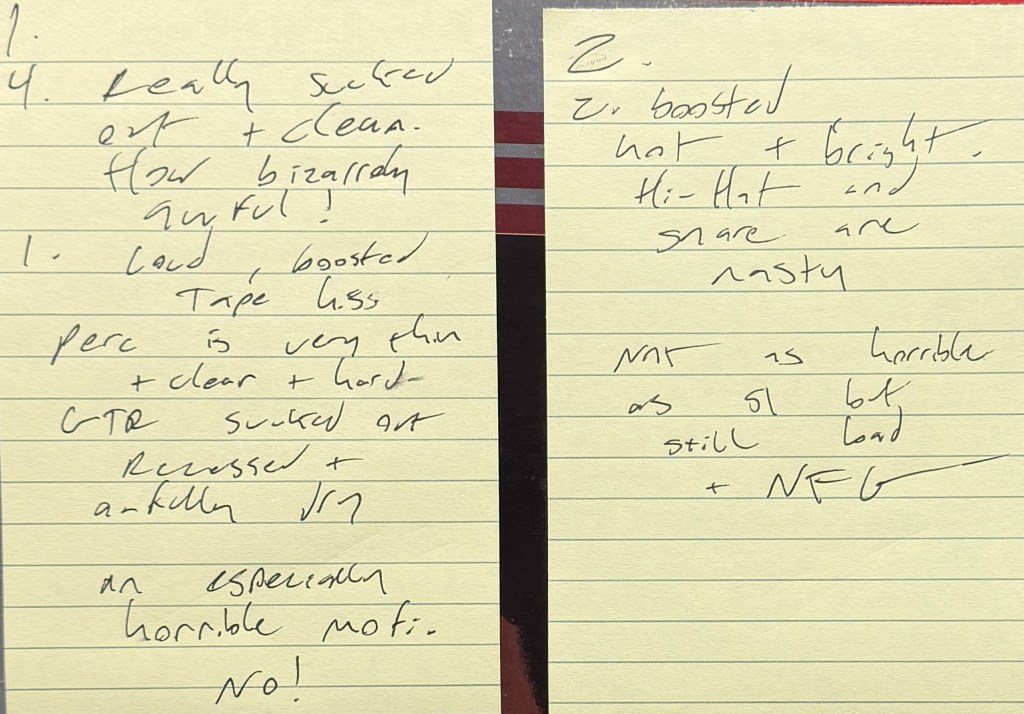 1.
4. Really sucked
out + clean.
How bizarrely
awful!
1. Loud, boosted
Tape hiss
Perc is very thin
+ clear + hard
GTR sucked out
Recessed +
awfully dry
an especially
horrible mofi.
NO!
2.
2. boosted
hot + bright.
Hi-Hat and
snare are
nasty
Not as horrible
as S1 but
still bad
+ NFG